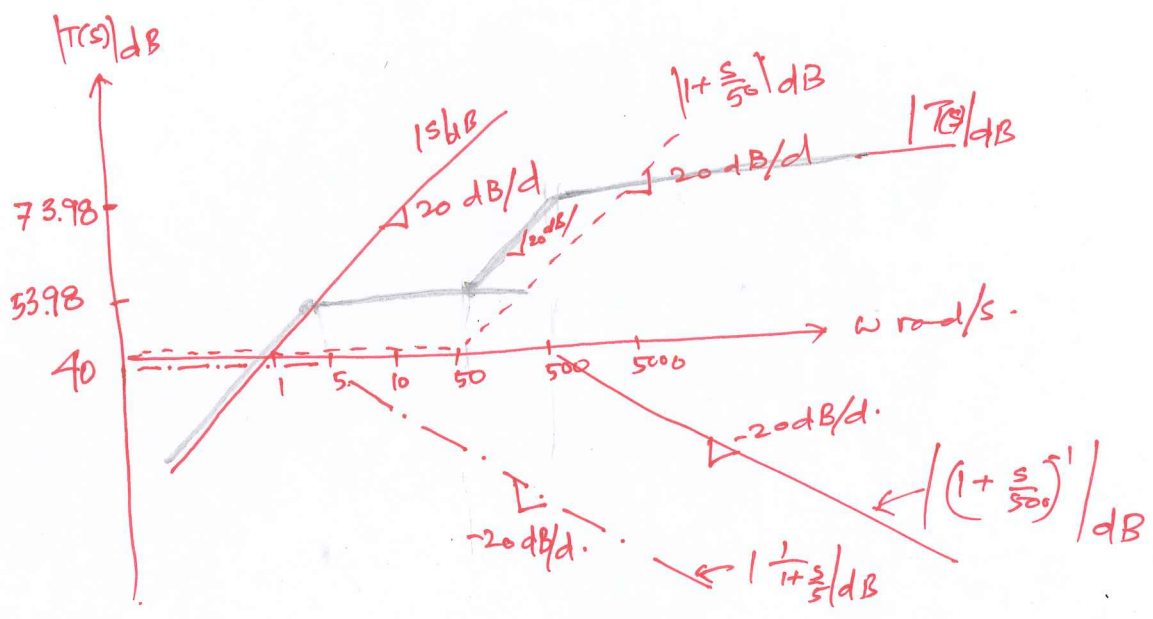 |T(s)|dB
|1+s/50|dB
|s|dB
|T(s)|dB
20 dB/d
20 dB/d
73.98
20 dB/
53.98
ω rad/s.
40
1
5
10
50
500
5000
-20dB/d.
|(1+s/500)^-1|dB
-20 dB/d.
|1/(1+s/5)|dB